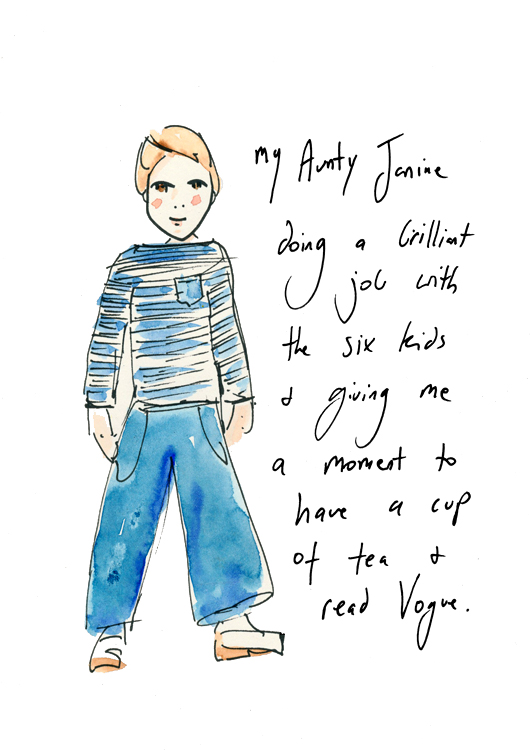 my Aunty Janine
doing a brilliant
job with
the six kids
& giving me
a moment to
have a cup
of tea &
read Vogue.